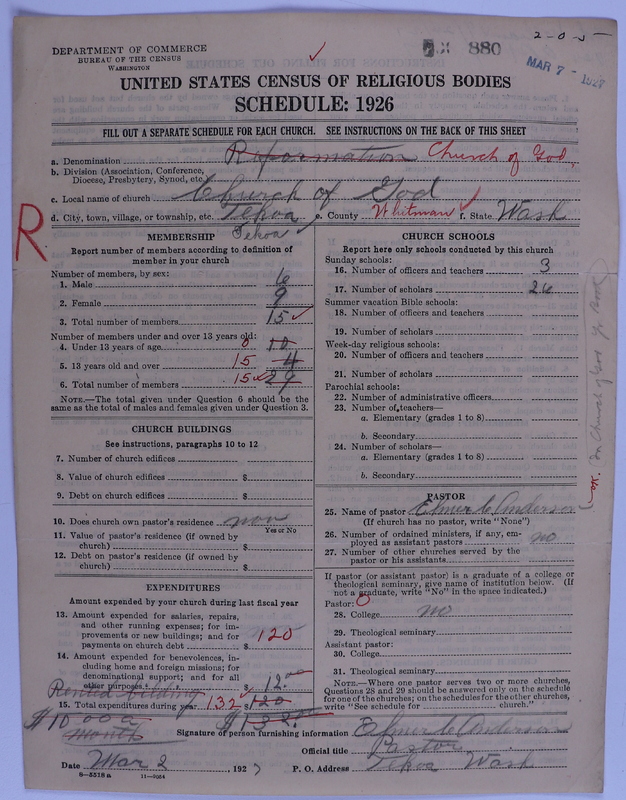 2-0-5
880
MAR 7 - 1927
DEPARTMENT OF COMMERCE
BUREAU OF THE CENSUS
WASHINGTON
UNITED STATES CENSUS OF RELIGIOUS BODIES
SCHEDULE: 1926
FILL OUT A SEPARATE SCHEDULE FOR EACH CHURCH. SEE INSTRUCTIONS ON THE BACK OF THIS SHEET
a. Denomination Reformation Church of God,
b. Division (Association, Conference,
Diocese, Presbytery, Synod, etc.)
c. Local name of church Church of God
d. City, town, village, or township, etc. Tekoa e. County Whitman f. State Wash
Tekoa
R
MEMBERSHIP
Report number of members according to definition of
member in your church
Number of members, by sex:
1. Male 6
2. Female 9
3. Total number of members 15
Number of members under and over 13 years old:
4. Under 13 years of age 0 10
5. 13 years old and over 15 4
6. Total number of members 15 29
NOTE.—The total given under Question 6 should be
the same as the total of males and females given under Question 3.
CHURCH BUILDINGS
See instructions, paragraphs 10 to 12
7. Number of church edifices
8. Value of church edifices $
9. Debt on church edifices $
10. Does church own pastor's residence non
Yes or No
11. Value of pastor's residence (if owned by
church) $
12. Debt on pastor's residence (if owned by
church) $
EXPENDITURES
Amount expended by your church during last fiscal year
13. Amount expended for salaries, repairs,
and other running expenses; for im-
provements or new buildings; and for
payments on church debt $ 120
14. Amount expended for benevolences, in-
cluding home and foreign missions; for
denominational support; and for all
other purposes $ 12.00
Rented building
15. Total expenditures during year 132 $ 120
$10.00 a
month
CHURCH SCHOOLS
Report here only schools conducted by this church
Sunday schools:
16. Number of officers and teachers 3
17. Number of scholars 26
Summer vacation Bible schools:
18. Number of officers and teachers
19. Number of scholars
Week-day religious schools:
20. Number of officers and teachers
21. Number of scholars
Parochial schools:
22. Number of administrative officers
23. Number of teachers—
a. Elementary (grades 1 to 8)
b. Secondary
24. Number of scholars—
a. Elementary (grades 1 to 8)
b. Secondary
PASTOR
25. Name of pastor Elmer C Anderson
(If church has no pastor, write "None")
26. Number of ordained ministers, if any, em-
ployed as assistant pastors no
27. Number of other churches served by the
pastor or his assistants
If pastor (or assistant pastor) is a graduate of a college or
theological seminary, give name of institution below. (If
not a graduate, write "No" in the space indicated.)
Pastor: 0
28. College no
29. Theological seminary
Assistant pastor:
30. College
31. Theological seminary
NOTE.—Where one pastor serves two or more churches,
Questions 28 and 29 should be answered only on the schedule
for one of the churches; on the schedules for the other churches,
write "See schedule for church."
Signature of person furnishing information Elmer C Anderson
Official title Pastor
Date Mar 2, 1927 P. O. Address Tekoa Wash
8-5518a 11-9024